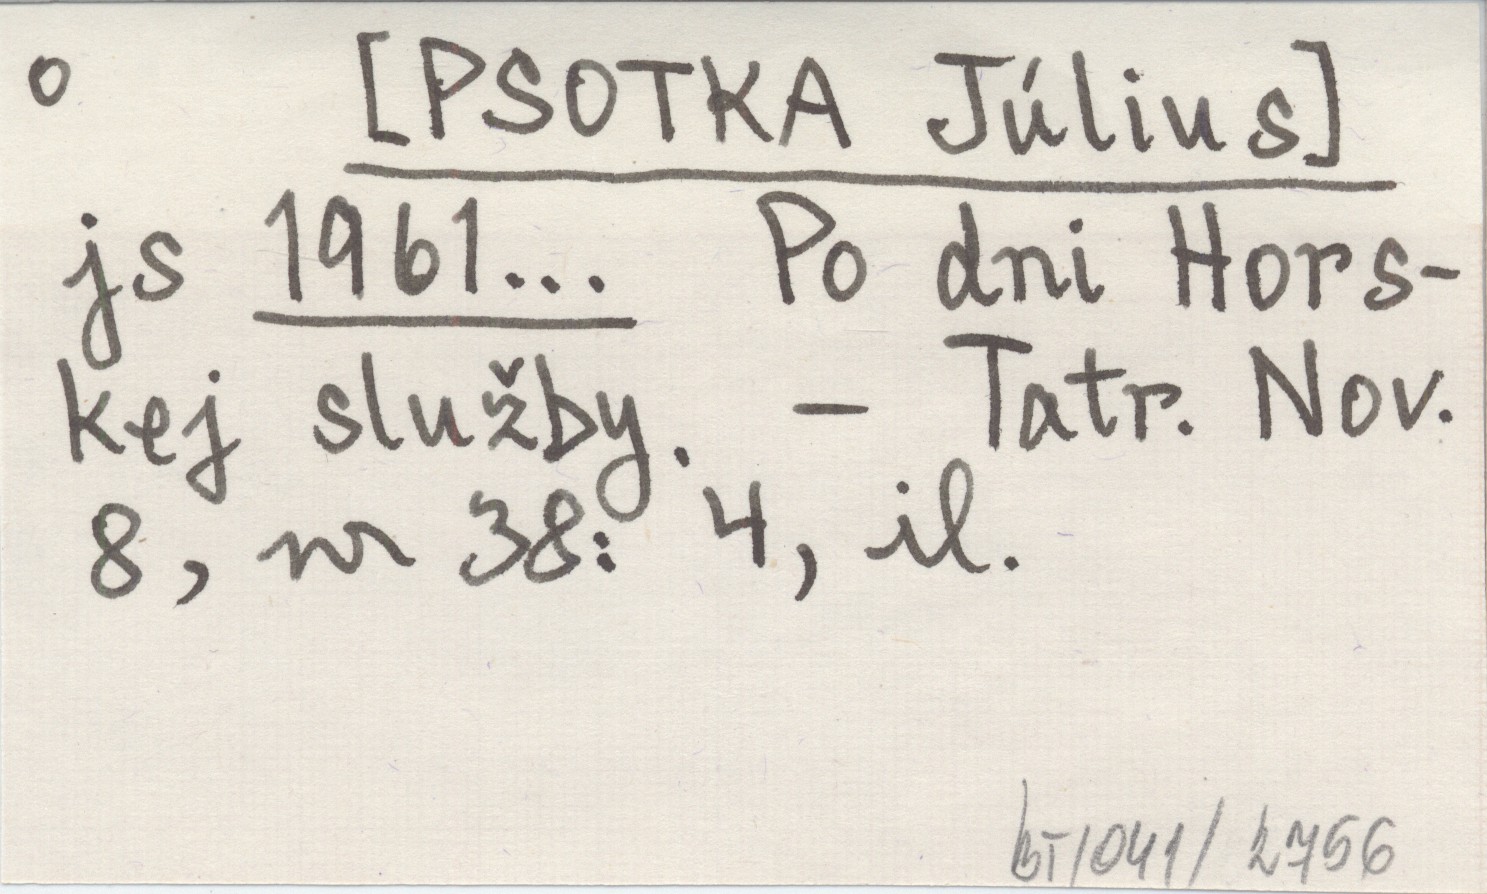 o [PSOTKA Július]
js 1961... Po dni Hors-
kej služby. - Tatr. Nov.
8, nr 38: 4, il.
BT/041/2756